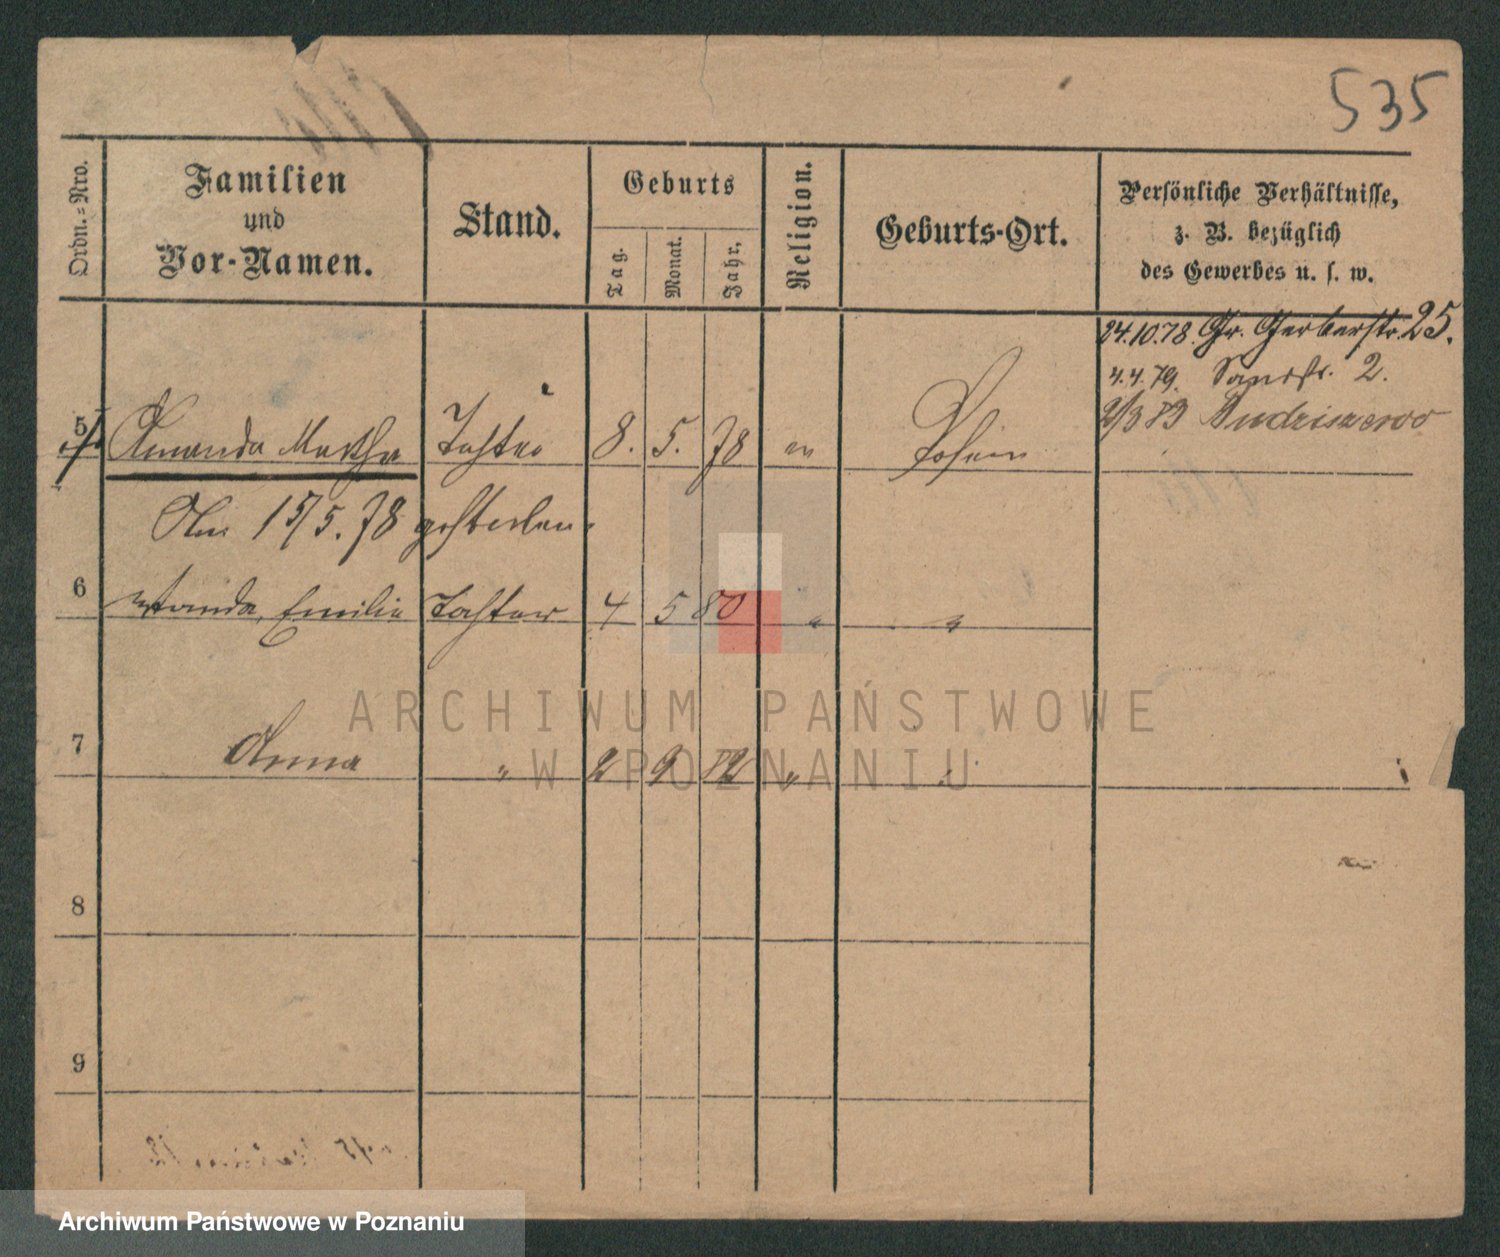 535
Ordn.=Nro.
Familien
und
Vor-Namen.
Stand.
Geburts
Tag.
Monat.
Jahr.
Religion.
Geburts-Ort.
Persönliche Verhältnisse,
z. B. bezüglich
des Gewerbes u. s. w.
24.10.78. Gr. Gerberstr. 25.
4.4.79. Sandstr. 2.
83
5 Amanda Martha Tochter 8. 5. 78 ev Posen
Am 15/5. 78 gestorben.
6 Wanda, Emilie Tochter 4 5 80 " "
7 Anna " 2 9 82 " "
8
9
ARCHIWUM PAŃSTWOWE
W POZNANIU
Archiwum Państwowe w Poznaniu